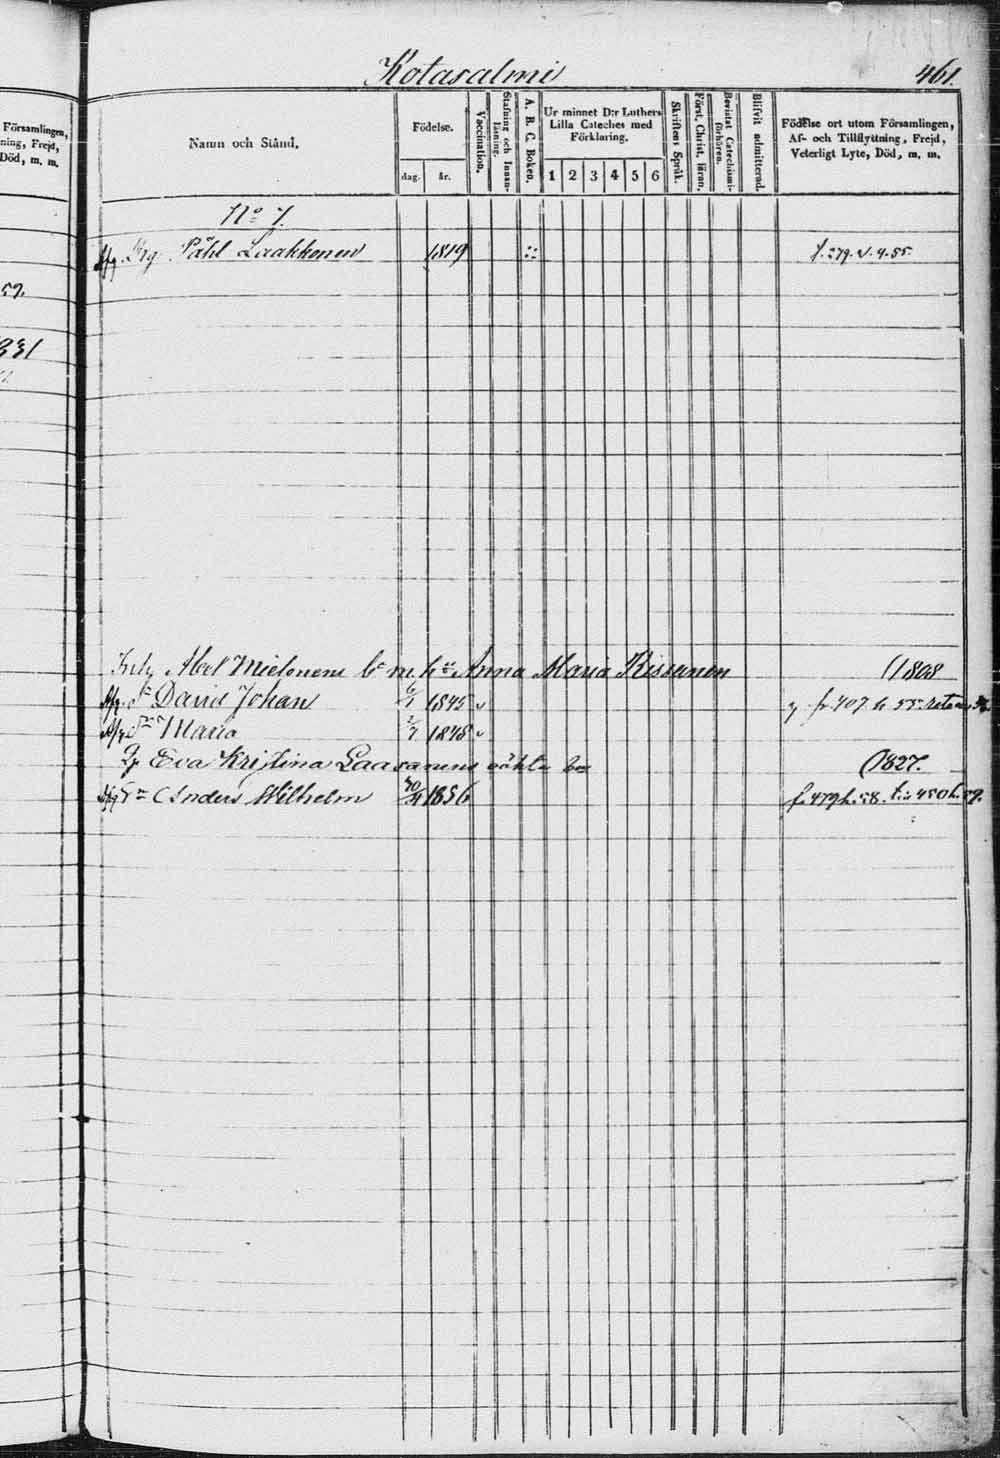 Kotasalmi 461.
Församlingen,
ning, Frejd,
Död, m. m.
Namn och Stånd.
Födelse.
dag. år.
Vaccination.
Stafning och Innanläsning.
A. B. C. Boken.
Ur minnet D:r Luthers
Lilla Cateches med
Förklaring.
1 2 3 4 5 6
Skriftens Språk.
Först. Christ. läran.
Bevistat Catechismiförhören.
Blifvit admitterad.
Födelse ort utom Församlingen,
Af- och Tillflyttning, Frejd,
Veterligt Lyte, Död, m. m.
No 7.
Påhl Laakkonen 1819 f. 279. 4. 55.
57.
331
Abel Mielonens m h Anna Maria Kissanen 1808
David Johan 1845 407 55
Maria 1848
Eva Kristina Laasanens 1827.
Anders Wilhelm 1856 f. 479 h. 58. 450 h. 59.